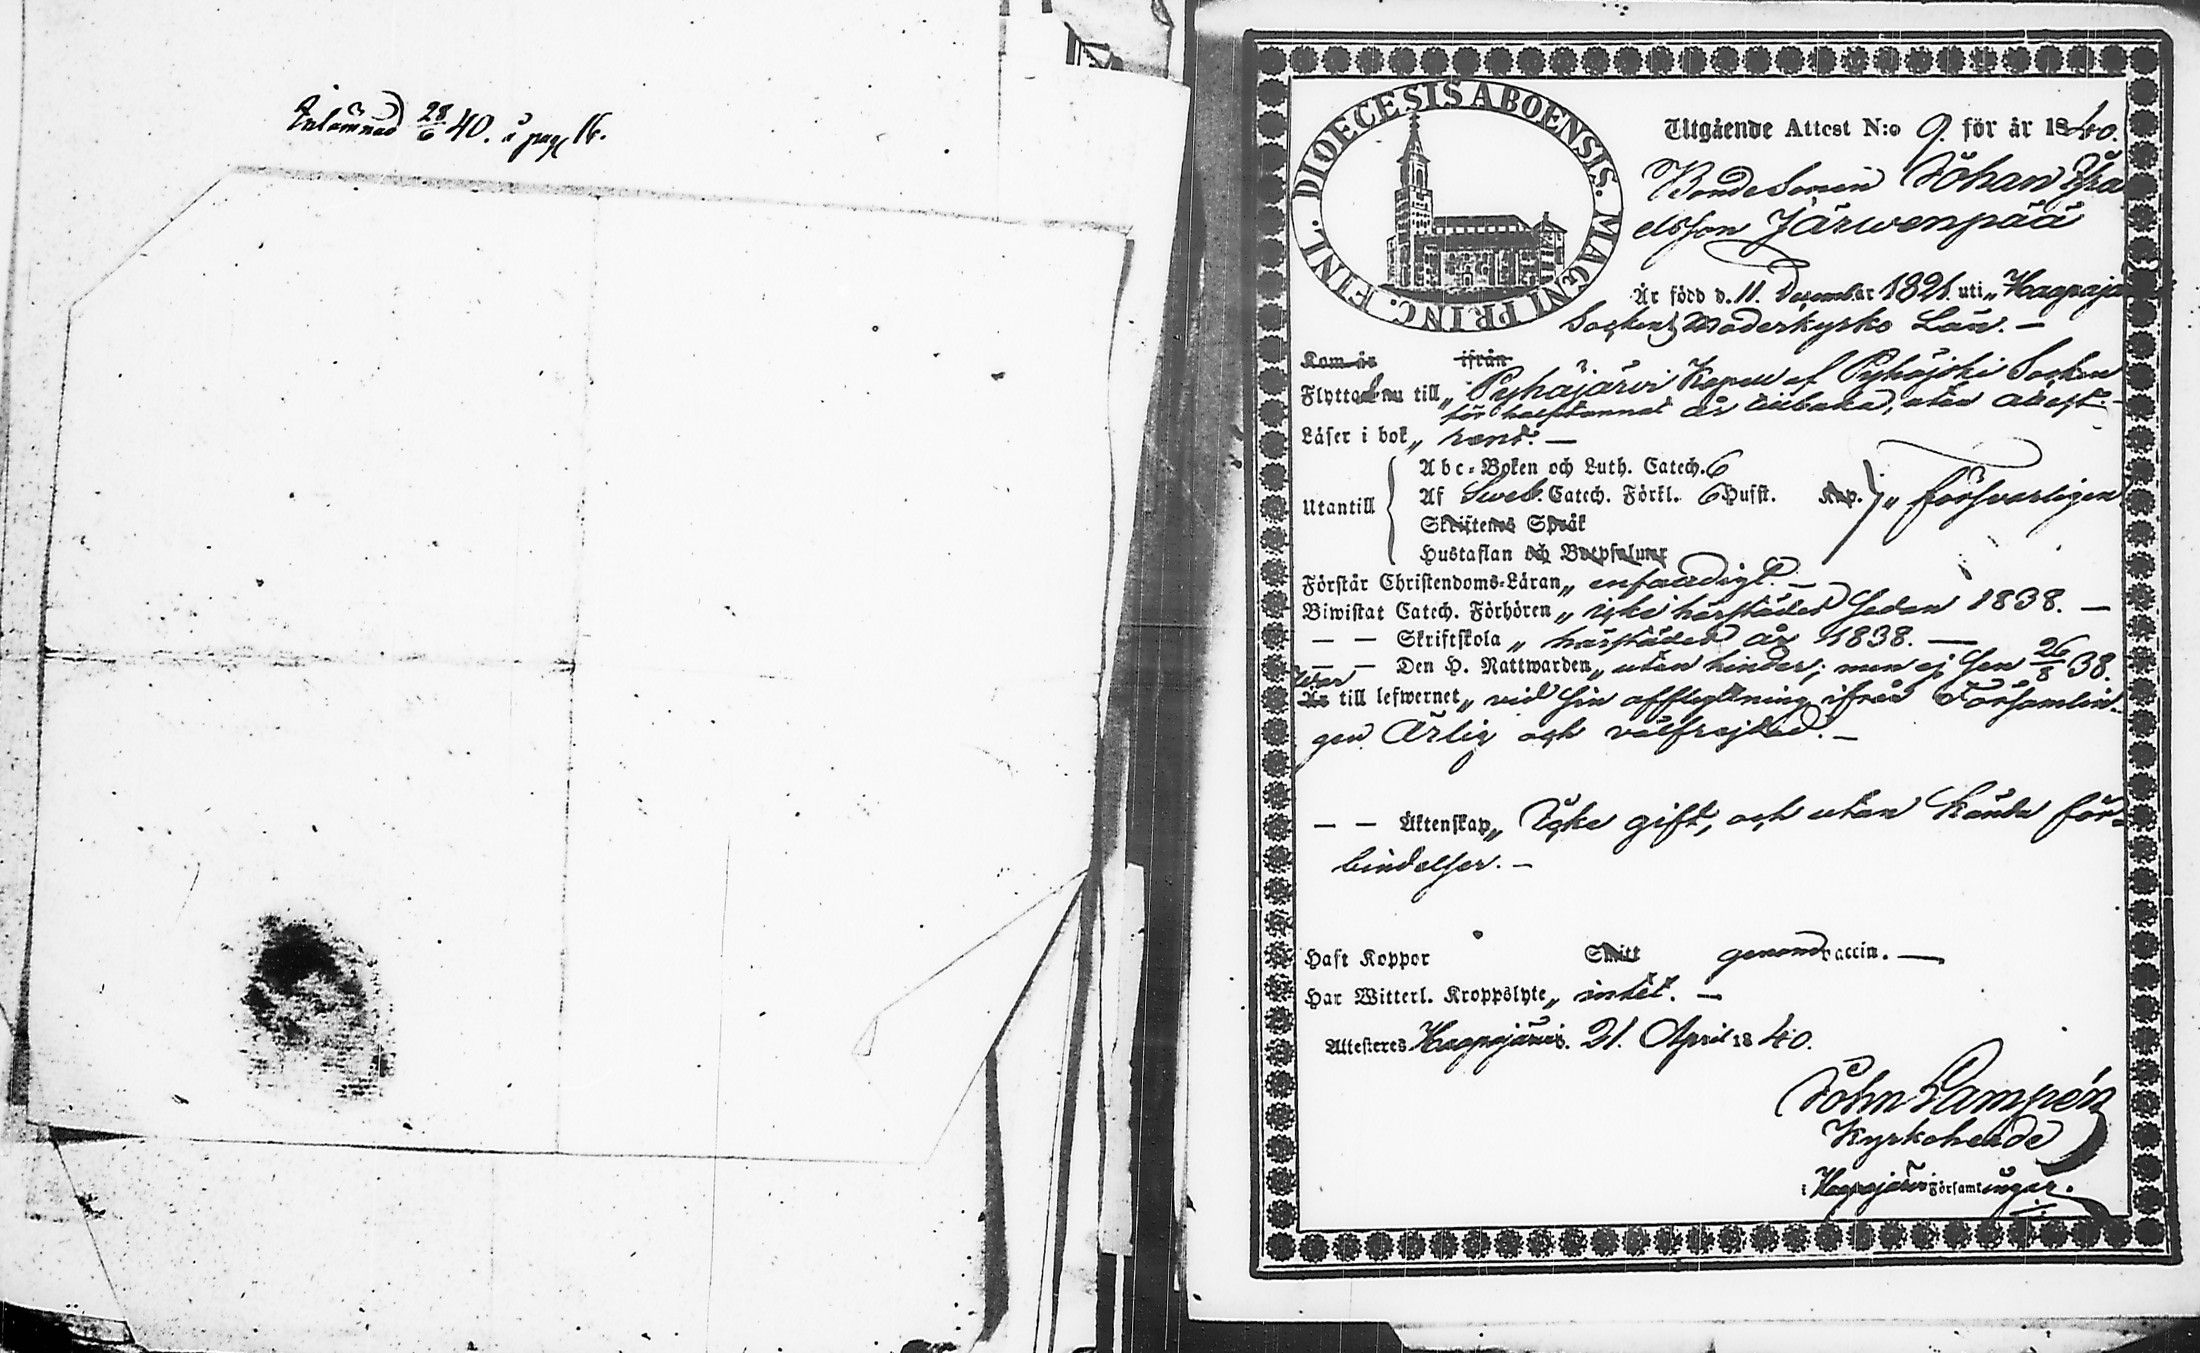 Inlämnad 28/6 40. å pag 16.
DIOECESIS ABOENSIS. MAGNI PRINC. FINL.
Utgående Attest N:o 9. för år 1840.
Bondesonen Johan Isra
elsson Järwenpää
Är född d. 11. December 1821. uti „ Haapajä
Sockens Moderkyrko Län. —
Kom år ifrån
Flyttade till „ Pyhäjärvi Kapell af Pyhäjoki Socken
för halftannat år tillbaka, utan attest. —
Läser i bok „ rent. —
Utantill
Abc-Boken och Luth. Catech. 6
Af Sveb. Catech. Förkl. 6 Hufst. Kap. „ försvarligen
Skriftenes Språk
Hustaflan och Botpsalmer
Förstår Christendoms-Läran „ enfaldigt. —
Biwistat Catech. Förhören „ icke härstädes sedan 1838. —
— — Skriftskola „ härstädes år 1838. —
— — Den H. Nattwarden „ utan hinder; men ej sen 26/8 38.
War
Är till lefwernet „ vid sin afflyttning ifrån Församlin-
gen Ärlig och välfrejdad. —
— — Äktenskap „ Icke gift, och utan kända för-
bindelser. —
Haft Koppor Skitt genom vaccin. —
Har Witterl. Kroppslyte „ intet. —
Attesteres Haapajärvi. 21. April 1840.
John Lampén
Kyrkoherde
i Haapajärvi Församlingar.